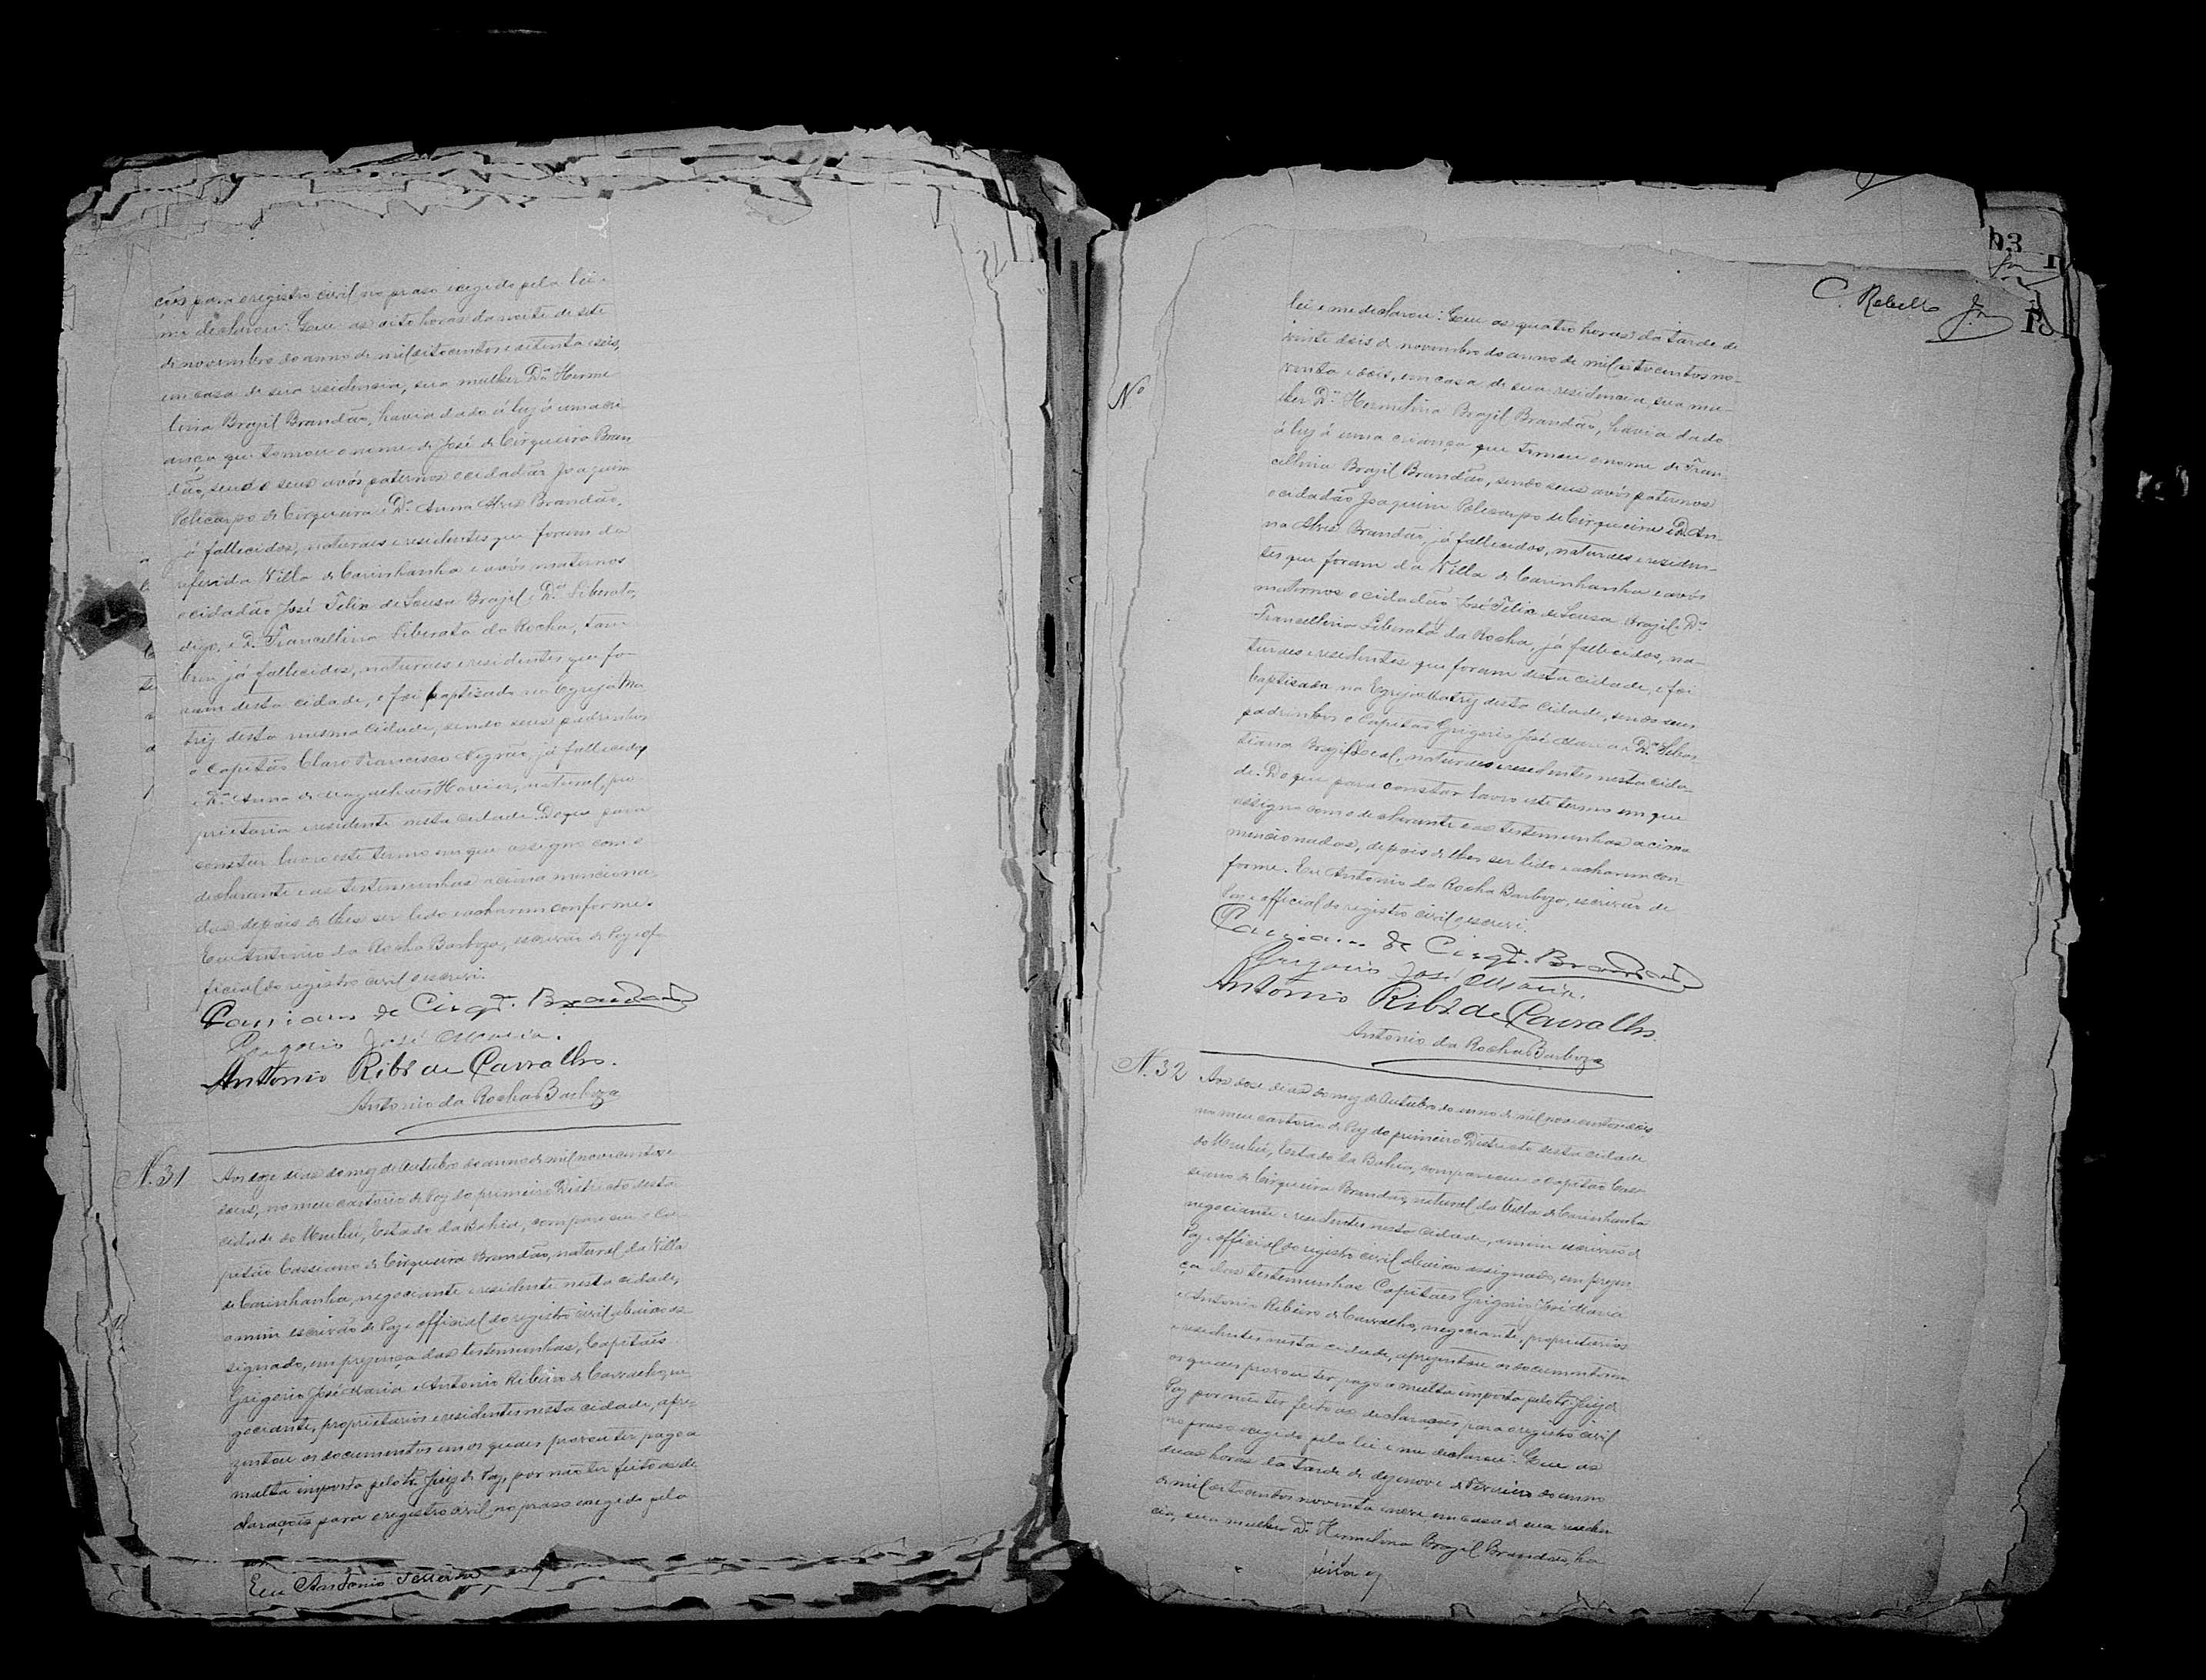 ções para o registro civil no praso exegido pela lei e
me declarou: Que as oito horas da noite de sete
de novembro do anno de mil oitocentos e setenta e seis,
em casa de sua residencia, sua mulher D.ª Herme
lina Brazil Brandão, havia dado á luz á uma cri
ança que tomou o nome de José de Cirqueira Bran
dão, sendo seus avós paternos o cidadão Joaquim
Policarpo de Cirqueira e D.ª Anna Alves Brandão,
já fallecidos, naturaes e residentes que foram da
referida Villa de Carinhanha e avós maternos
o cidadão José Felix de Sousa Brazil e D.ª Liberata,
digo, e D. Francellina Liberata da Rocha, tam
bem já fallecidos, naturaes e residentes que fo
ram desta cidade, e foi baptisado na Egreja Ma
triz desta mesma cidade, sendo seus padrinhos
o Capitão Claro Francisco Negrão, já fallecido,
e D.ª Anna de Magalhães Xavier, natural, pro
prietaria e residente nesta cidade. Do que para
constar lavro este termo em que assigno com o
declarante e as testemunhas acima menciona
das depois de lhes ser lido e acharem conforme.
Eu Antonio da Rocha Barboza, escrivão de Paz e of
ficial do registro civil o escrevi.
Cassiano de Cirqr.ª Brandão
Grigorio José Maria.
Antonio Ribr.º de Carvalho.
Antonio da Rocha Barboza
N. 31
Aos doze dias do mez de Outubro do anno de mil novecentos e
dous, no meu cartorio de Paz do primeiro Districto desta
cidade do Urubú, Estado da Bahia, compareceu o Ca
pitão Cassiano de Cirqueira Brandão, natural da Villa
de Carinhanha, negociante e residente nesta cidade,
a mim escrivão de Paz e official do registro civil abaixo as
signado, em prezença das testemunhas, Capitães
Grigorio José Maria e Antonio Ribeiro de Carvalho, ne
gociante, proprietarios e residentes nesta cidade, apre
zentou os documentos em os quaes provou ter pago a
multa imposta pelo Sr. Juiz de Paz, por não ter feito as de
clarações para o registro civil no praso exegido pela
Eu Antonio
C. Rebello Jr
93
lei e me declarou: Que as quatro horas da tarde de
vinte dois de novembro do anno de mil oitocentos no-
venta e dois, em casa de sua residencia, sua mu-
lher D.ª Hermelina Brazil Brandão, havia dado
á luz á uma criança que tomou o nome de Fran-
cellina Brazil Brandão, sendo seus avós paternos
o cidadão Joaquim Policarpo de Cirqueira e D. An-
na Alves Brandão, já fallecidos, naturaes e residen-
tes que foram da Villa de Carinhanha e avós
maternos o cidadão José Felix de Sousa Brazil e D.ª
Francellina Liberata da Rocha, já fallecidos, na-
turaes e residentes que foram desta cidade, e foi
baptisada na Egreja Matriz desta cidade, sendo seus
padrinhos o Capitão Grigorio José Maria e D.ª Sebas
tiana Brazil Leal, naturaes e residentes nesta cida-
de. Do que para constar lavro este termo em que
assigno com o declarante e as testemunhas acima
mencionadas, depois de lhes ser lido e acharem con-
forme. Eu Antonio da Rocha Barboza, escrivão de
Paz e official do registro civil o escrevi.
Nº
Cassiano de Cirqr.ª Brandão
Grigorio José Maria.
Antonio Ribr.º de Carvalho.
Antonio da Rocha Barboza
N. 32
Aos doze dias do mez de Outubro do anno de mil novecentos e dois
no meu cartorio de Paz do primeiro Districto desta cidade
do Urubú, Estado da Bahia, compareceu o Capitão Cas
siano de Cirqueira Brandão, natural da Villa de Carinhanha
negociante e residente nesta cidade, a mim escrivão de
Paz e official do registro civil abaixo assignado, em prezen
ça das testemunhas Capitães Grigorio José Maria
e Antonio Ribeiro de Carvalho, negociante, proprietarios
e residentes nesta cidade, aprezentou os documentos em
os quaes provou ter pago a multa imposta pelo Sr. Juiz de
Paz por não ter feito as declarações para o registro civil
no praso exegido pela lei e me declarou: Que as
duas horas da tarde de dezenove de Fevereiro do anno
de mil oitocentos noventa e nove, em casa de sua residen
cia, sua mulher D.ª Hermelina Brazil Brandão, ha